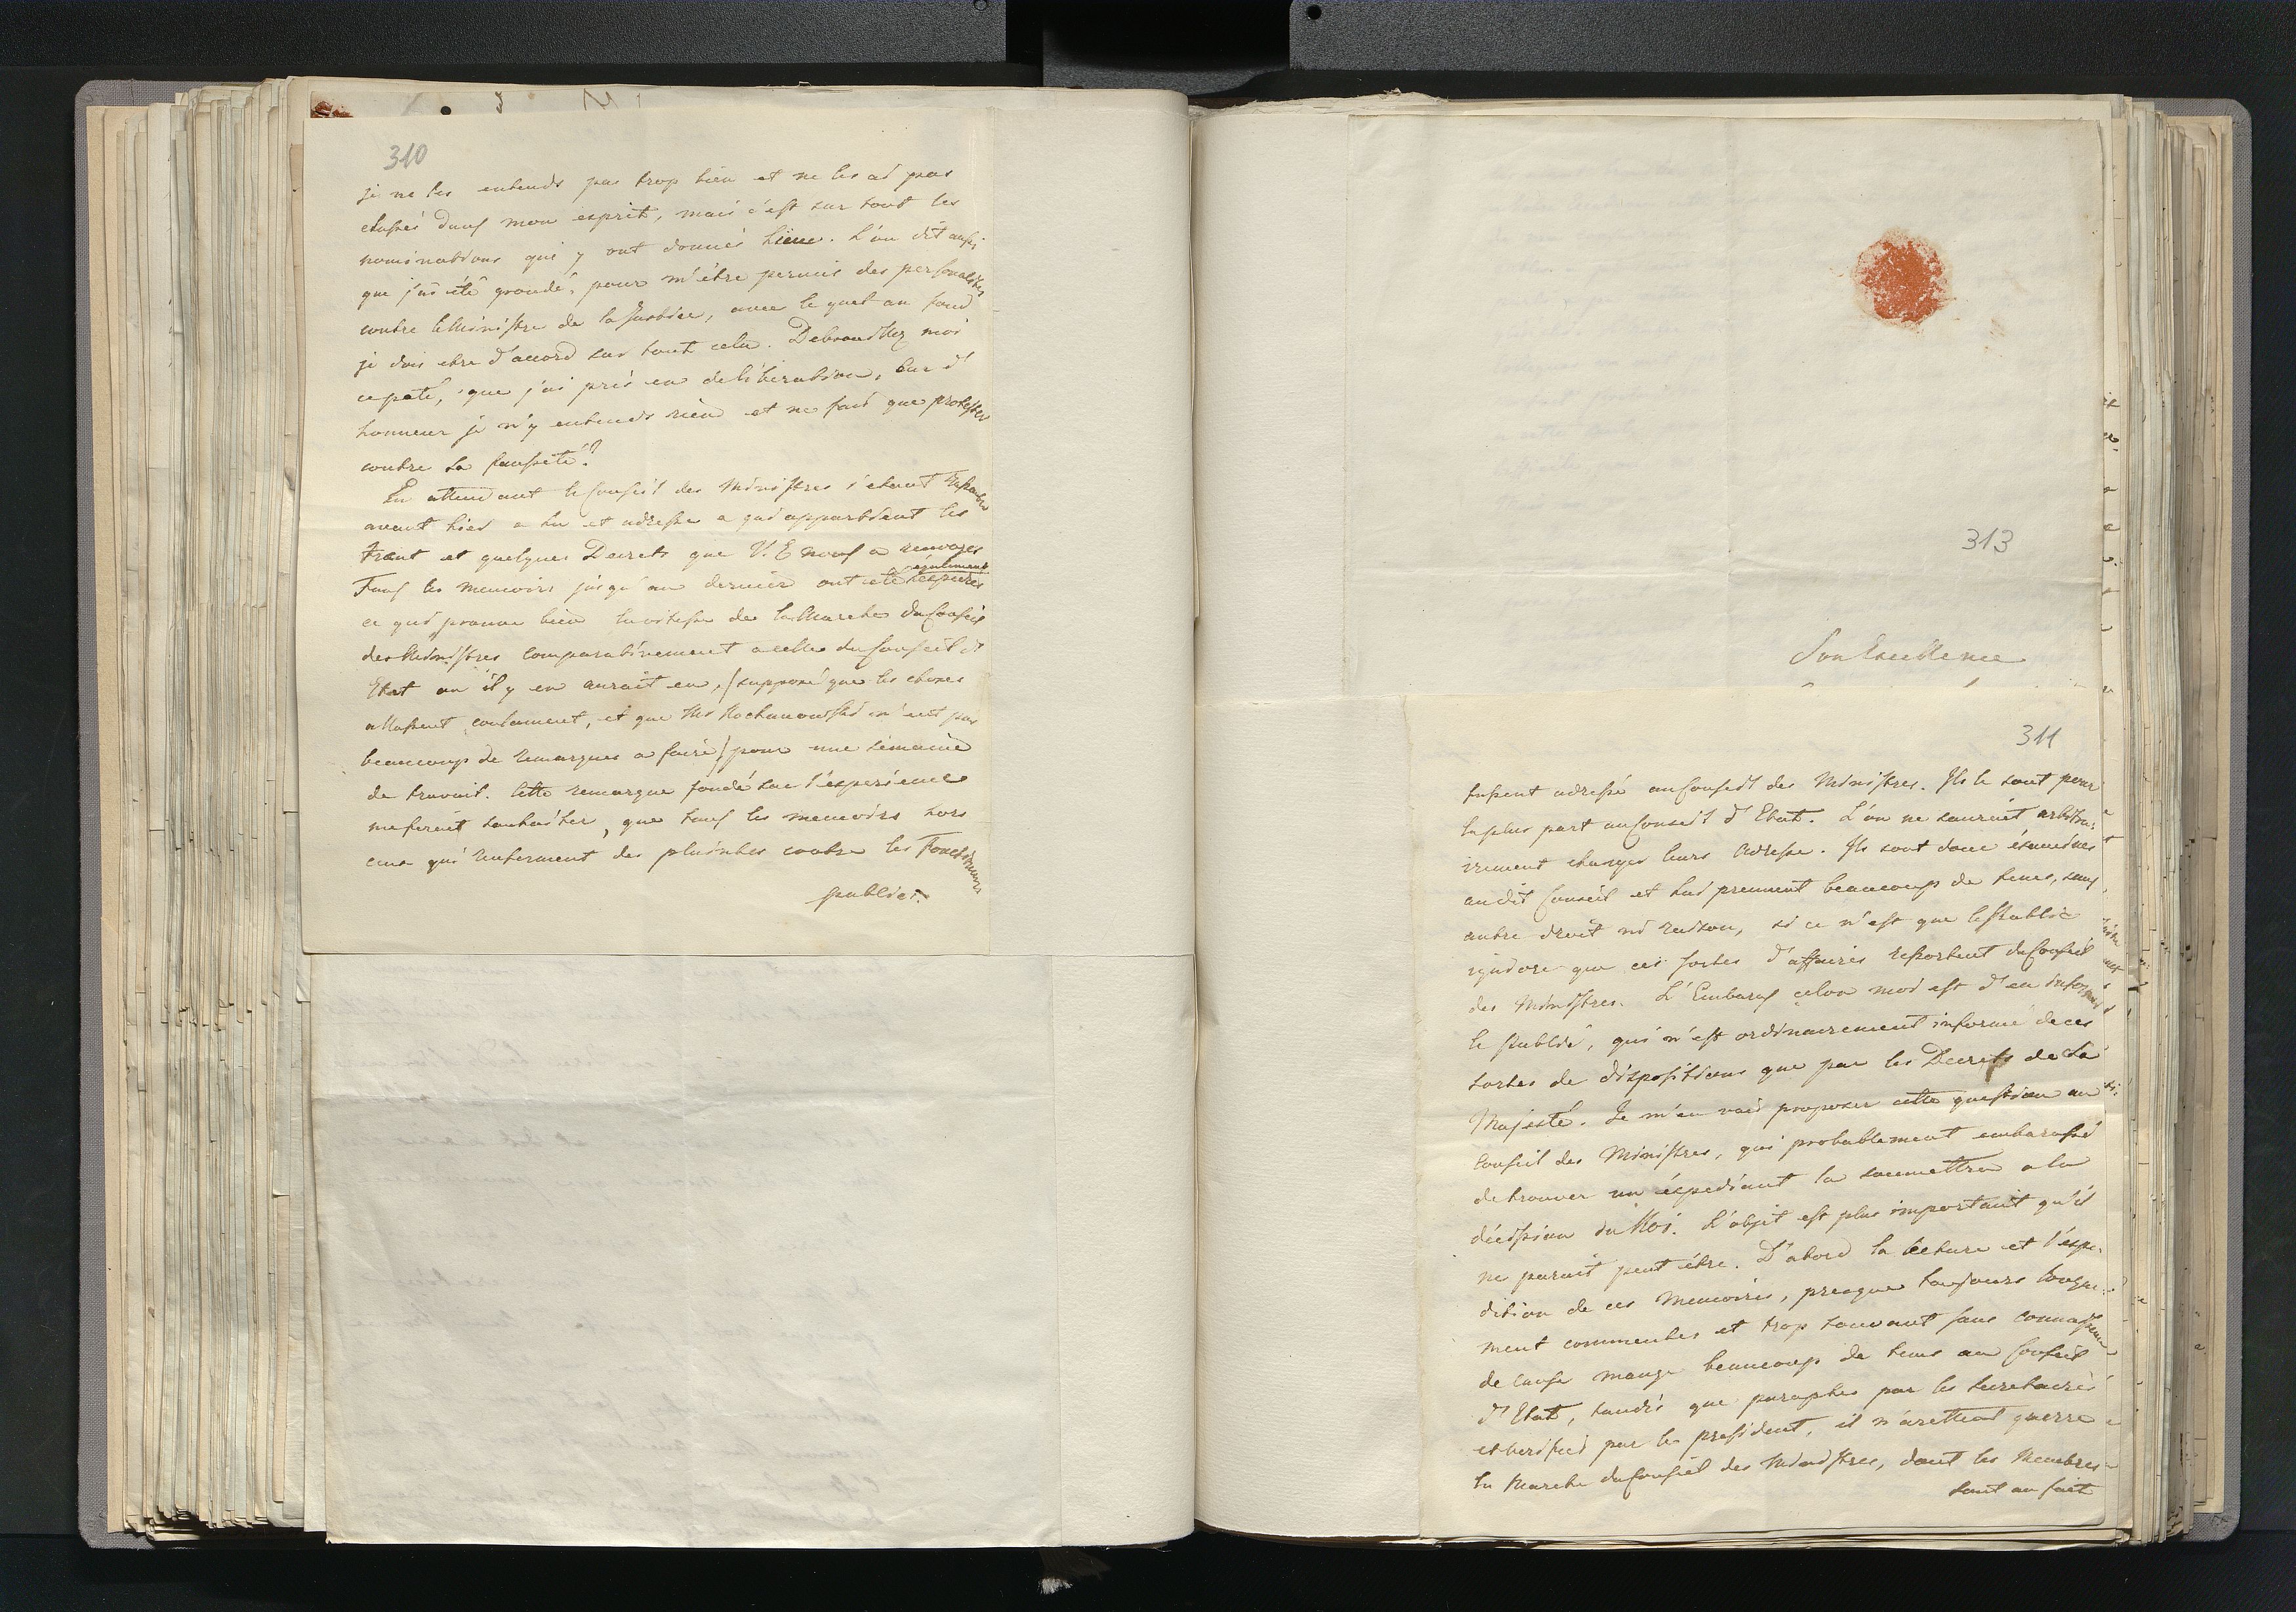 310
je ne les entends pas trop bien et ne les ai pas
classés dans mon esprit, mais c'est sur tout les
nominations qui y ont donnés lieue. L'on dit aussi
que j'ai été grondé, pour m'être permis des personalités
contre le Ministre de la Justice, avec le quel au fond
je dois etre d'accord sur tout cela. Debrouillez moi
ce paté, que j'ai pris en deliberation, Car d'
honneur je n'y entends rien et ne fais que protester
contre la fausseté!
En attendant le Conseil des Ministres s'etant
avant hier a lu et adressé a qui appartient les
trent et quelques Decrets que V. E nous a renvoyes
Tous les memoirs jusqu'au dernier ont eté egalement
ce qui prouve bien la vitesse de la Marche du Conseil
des Ministres comparativement a celle du Conseil d'
Etat ou il y en auroit eu, (supposé que les choses
allassent coulament, et que Mr Kochanowski n'eut pas
beaucoup de remarques a faire) pour une semaine
de travail. Cette remarque fondé sur l'experience
me feroit souhaiter, que tous les memoirs hors
ceux qui renferment des plaintes contre les Fonctionnaires
publics.
313
Son Excellence
311
fussent adressé au Conseil des Ministres. Ils le sont pour
la plus part au Conseil d'Etat. L'on ne sauroit arbitra-
irement changer leurs Adresse. Ils sont donc examinés
au dit Conseil et lui prennent beaucoup de tems, sans
autre droit ni raison, si ce n'est que le Public
ignore que ces sortes d'affaires ressortent du Conseil
des Ministres. L'Embaras celon moi est d'en informer
le Public, qui n'est ordinairement informé de ces
sortes de dispositions que par les Decrets de Sa
Majesté. Je m'en vais proposer cette question au
Conseil des Ministres, qui probablement embarassé
de trouver un expediant la soumettra a la
décission du Roi. L'objet est plus important qu'il
ne parait peut être. D'abord la lecture et l'expe-
dition de ces memoires, presque toujours longue-
ment commentés et trop souvant sans connaissance
de cause mange beaucoup de tems au Conseil
d'Etat, tandis que paraphés par les secretaires
et verifiés par le president, il n'arettent guerre
la Marche du Conseil des Ministres, dont les Membres
sont au fait